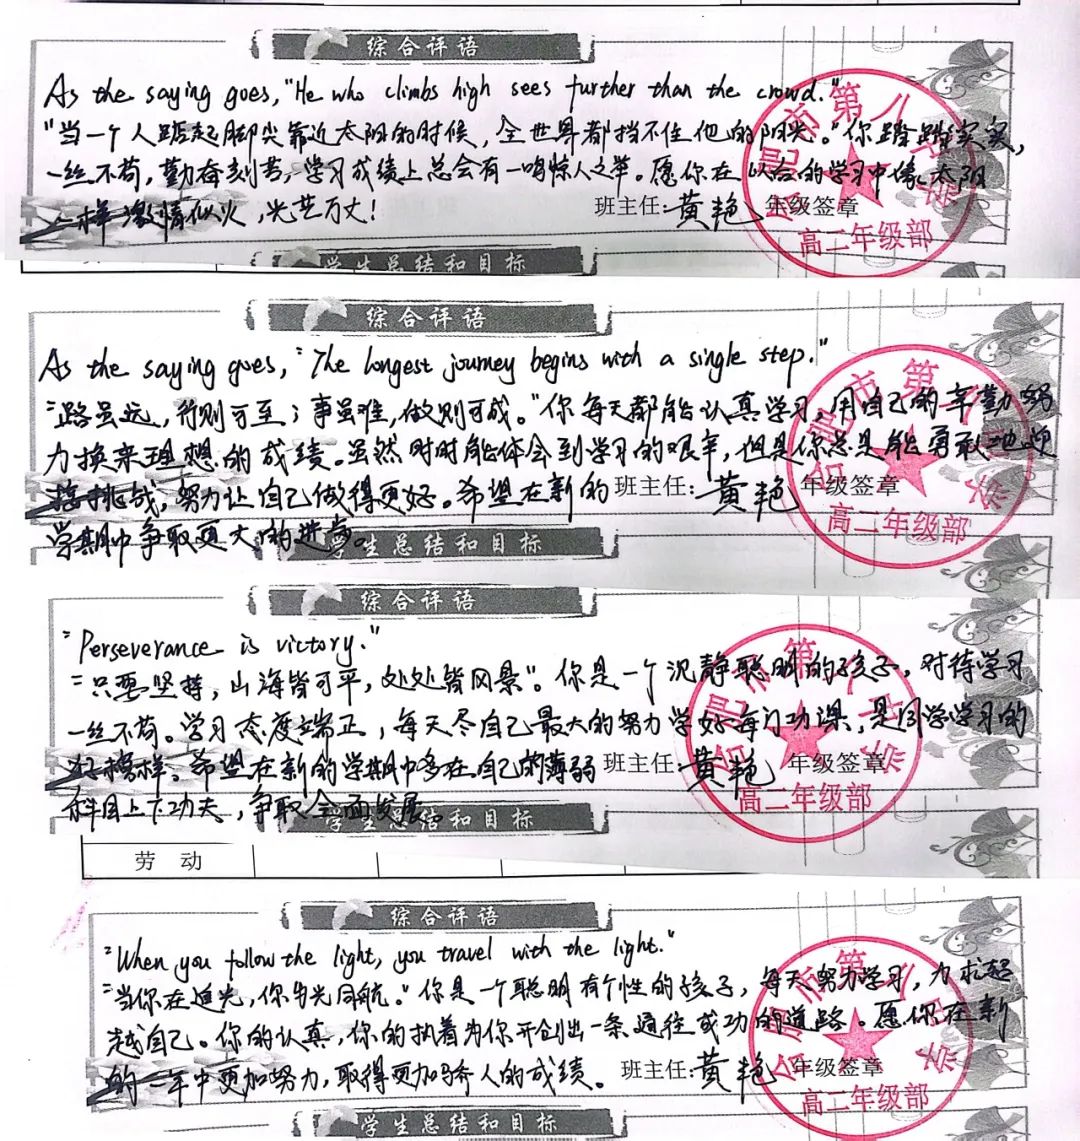 综合评语
As the saying goes, "He who climbs high sees further than the crowd."
"当一个人踮起脚尖靠近太阳的时候，全世界都挡不住他的阳光。"你踏踏实实，
一丝不苟，勤奋刻苦，学习成绩上总会有一鸣惊人之举。愿你在以后的学习中像太阳
一样激情似火，光芒万丈！
班主任：黄艳 年级签章
高二年级部
学生总结和目标
综合评语
As the saying goes, "The longest journey begins with a single step."
"路虽远，行则可至；事虽难，做则可成。"你每天都能认真学习，用自己的辛勤努
力换来理想的成绩。虽然时时能体会到学习的艰辛，但是你总是能勇敢地迎
接挑战，努力让自己做得更好。希望在新的
班主任：黄艳 年级签章
学期中争取更大的进步。
高二年级部
学生总结和目标
综合评语
"Perseverance is victory."
"只要坚持，山海皆可平，处处皆风景"。你是一个沉静聪明的孩子，对待学习
一丝不苟。学习态度端正，每天尽自己最大的努力学好每门功课，是同学学习的
好榜样。希望在新的学期中多在自己的薄弱
班主任：黄艳 年级签章
科目上下功夫，争取全面发展。
高二年级部
学生总结和目标
劳动
综合评语
"When you follow the light, you travel with the light."
"当你在追光，你与光同航。"你是一个聪明有个性的孩子，每天努力学习，力求超
越自己。你的认真，你的执着为你开创出一条通往成功的道路。愿你在新
的一年中更加努力，取得更加骄人的成绩。
班主任：黄艳 年级签章
高二年级部
学生总结和目标